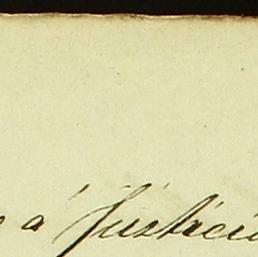 á Justicia